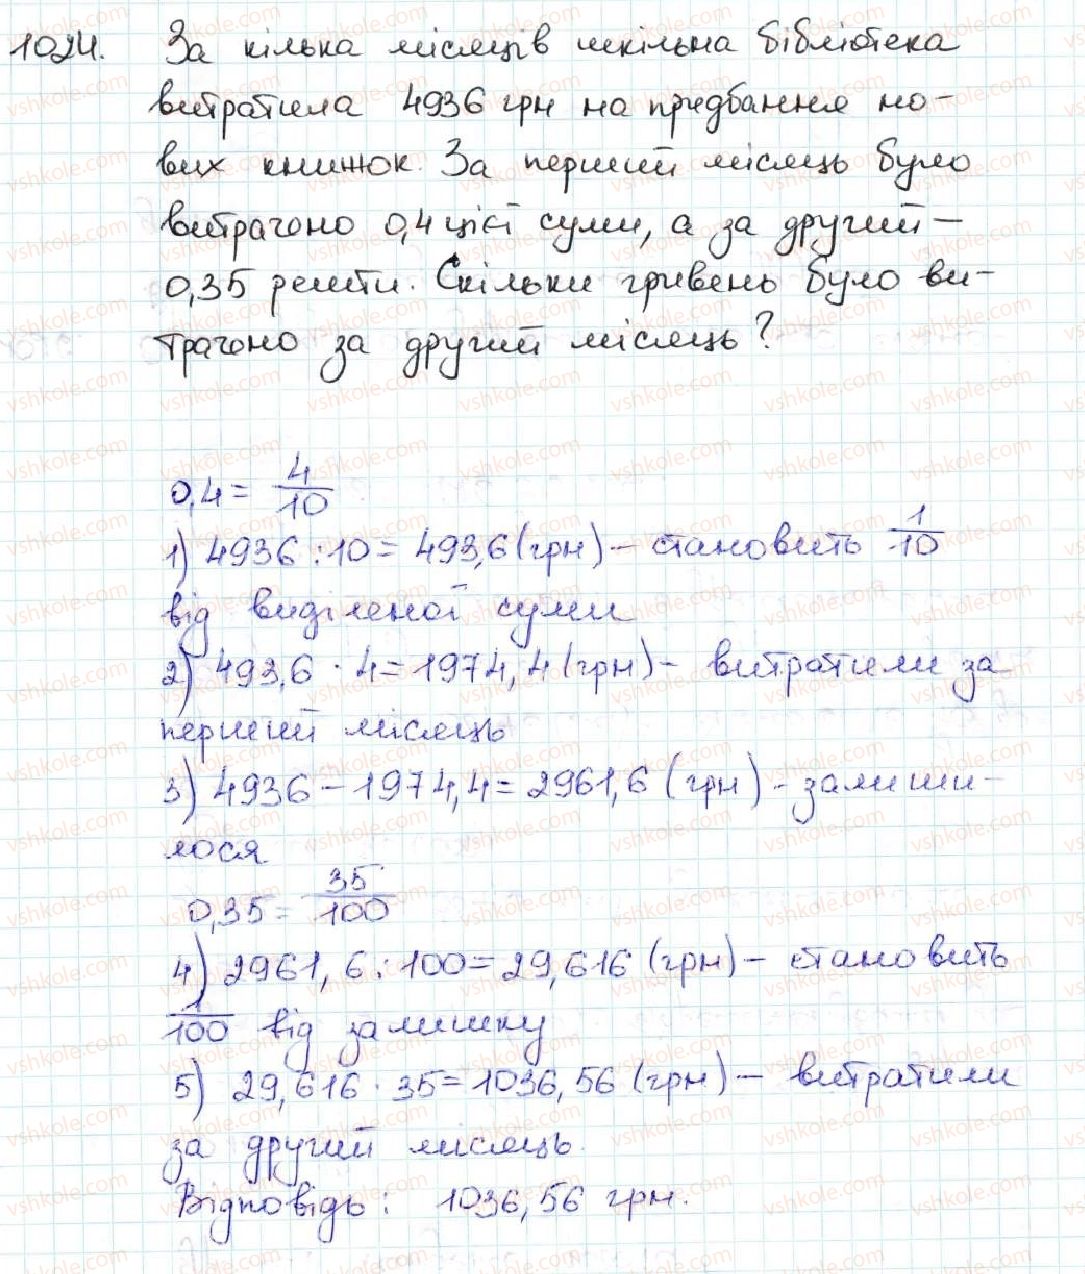 1024. За кілька місяців шкільна бібліотека
витратила 4936 грн на придбання но-
вих книжок. За перший місяць було
витрачено 0,4 цієї суми, а за другий –
0,35 решти. Скільки гривень було ви-
трачено за другий місяць?
0,4 = 4/10
1) 4936 : 10 = 493,6 (грн) – становить 1/10
від виділеної суми
2) 493,6 · 4 = 1974,4 (грн) – витратили за
перший місяць
3) 4936 – 1974,4 = 2961,6 (грн) - залиши-
лося
0,35 = 35/100
4) 2961,6 : 100 = 29,616 (грн) – становить
1/100 від залишку
5) 29,616 · 35 = 1036,56 (грн) – витратили
за другий місяць.
Відповідь: 1036,56 грн.
vshkole.com